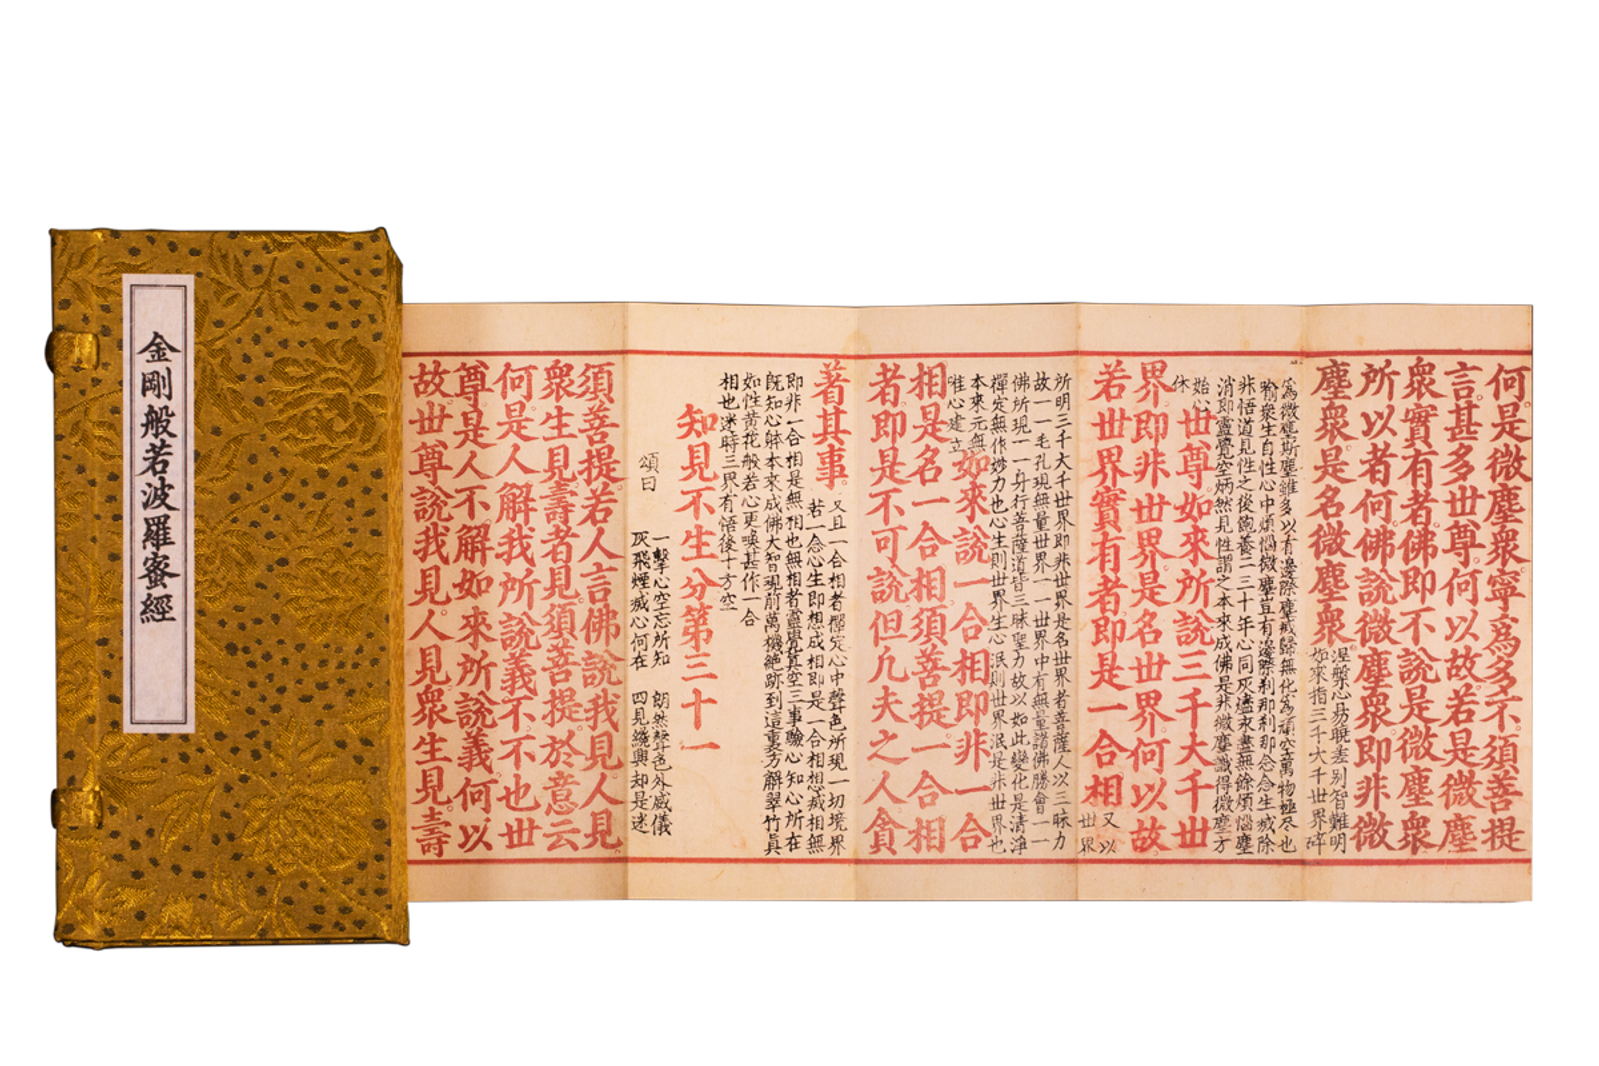 金剛般若波羅蜜經
何是微塵眾寧為多不須菩提
言甚多世尊何以故若是微塵
眾實有者佛即不說是微塵眾
所以者何佛說微塵眾即非微
塵眾是名微塵眾
涅槃心易曉差別智難明
如來指三千大千世界碎
為微塵斯塵雖多以有邊際塵滅歸無化為頑空萬物極尽也
喻衆生自性心中煩惱微塵豈有邊際刹那刹那念念生滅除
非悟道見性之後飽養二三十年心同灰燼永盡無餘煩惱塵
消即靈覺空炳然見性謂之本來成佛是非微塵識得微塵方
始心
休
世尊如來所說三千大千世
界即非世界是名世界何以故
若世界實有者即是一合相
又以
世界
所明三千大千世界即非世界是名世界者菩薩人以三昧力
故一一毛孔現無量世界一一世界中有無量諸佛勝會一一
佛所現一一身行菩薩道皆三昧聖力故以如此變化是清淨
禪定無作妙力也心生則世界生心泯則世界泯是非世界也
本來元無
唯心建立
如來說一合相即非一合
相是名一合相須菩提一合相
者即是不可說但凡夫之人貪
著其事
又且一合相者禪定心中聲色所現一切境界
若一念心生即想成相即是一合相想滅相無
即非一合相是無相也無相者靈覺真空三事驗心知心所在
既知心體本來成佛大智現前萬機絕跡到這裏方解翠竹真
如性黃花般若心更喚甚作一合
相也迷時三界有悟後十方空
知見不生分第三十一
頌曰
一擊心空忘所知 朗然聲色外威儀
灰飛煙滅心何在 四見纔興却是迷
須菩提若人言佛說我見人見
眾生見壽者見須菩提於意云
何是人解我所說義不不也世
尊是人不解如來所說義何以
故世尊說我見人見眾生見壽